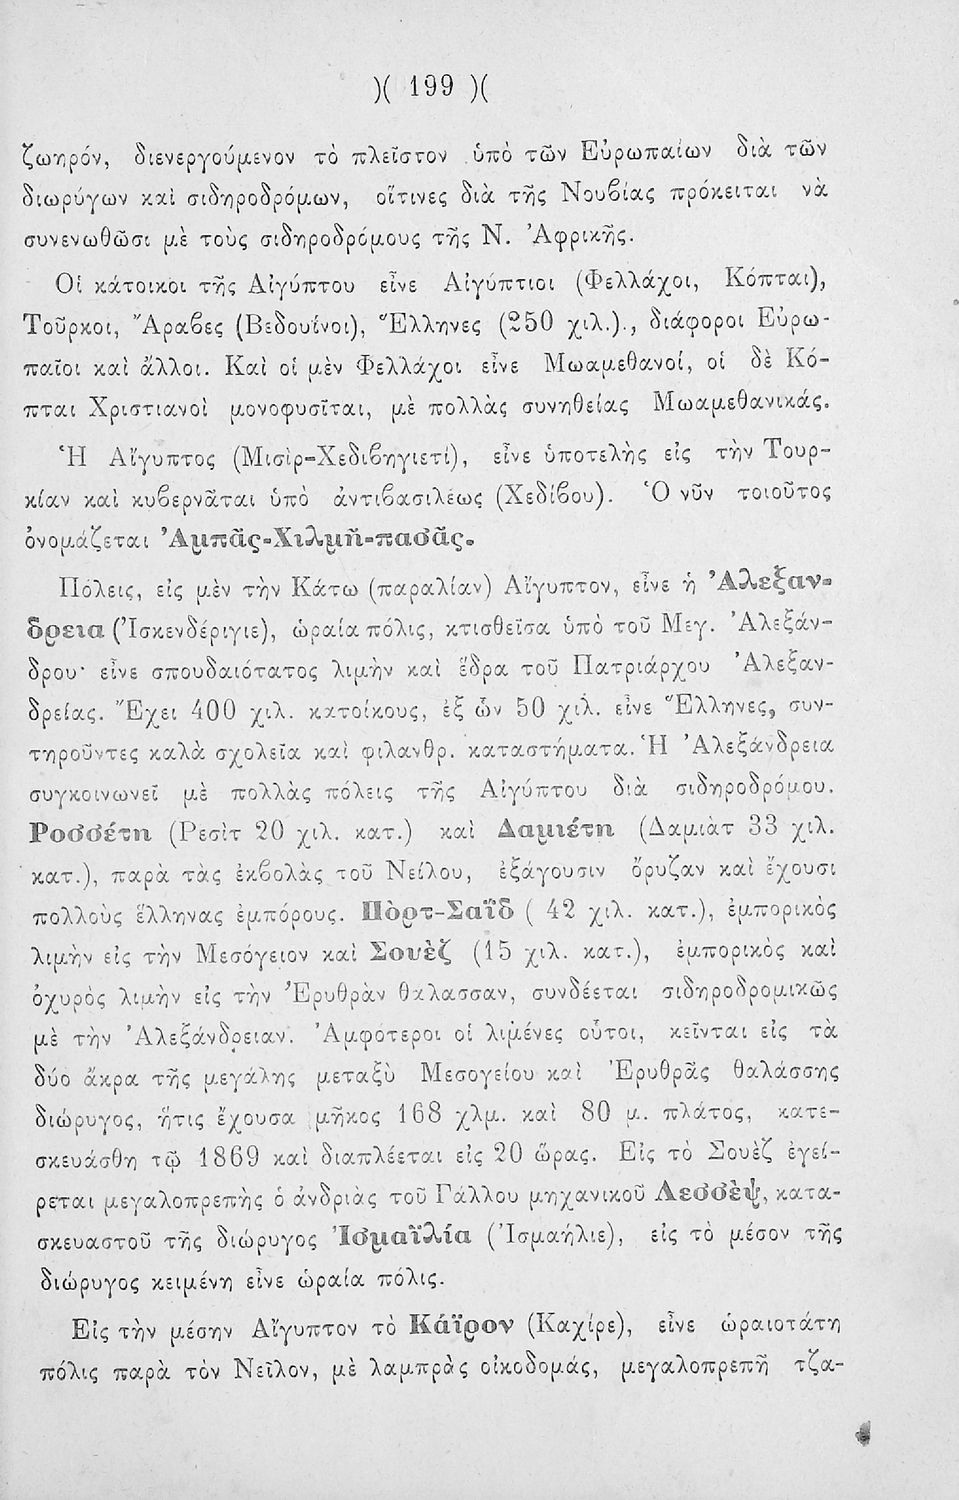 )( 199 )(
ζωηρόν, διενεργούμενον τὸ πλεῖστον ὑπὸ τῶν Εὐρωπαίων διὰ τῶν
διωρύγων καὶ σιδηροδρόμων, οἵτινες διὰ τῆς Νουβίας πρόκειται νὰ
συνενωθῶσι μὲ τοὺς σιδηροδρόμους τῆς Ν. Ἀφρικῆς.
Οἱ κάτοικοι τῆς Αἰγύπτου εἶνε Αἰγύπτιοι (Φελλάχοι, Κόπται),
Τοῦρκοι, Ἄραβες (Βεδουΐνοι), Ἕλληνες (250 χιλ.)., διάφοροι Εὐρω-
παῖοι καὶ ἄλλοι. Καὶ οἱ μὲν Φελλάχοι εἶνε Μωαμεθανοί, οἱ δὲ Κό-
πται Χριστιανοὶ μονοφυσῖται, μὲ πολλὰς συνηθείας Μωαμεθανικάς.
Ἡ Αἴγυπτος (Μισὶρ-Χεδιβηγιετί), εἶνε ὑποτελὴς εἰς τὴν Τουρ-
κίαν καὶ κυβερνᾶται ὑπὸ ἀντιβασιλέως (Χεδίβου). Ὁ νῦν τοιοῦτος
ὀνομάζεται Ἀμπᾶς-Χιλμῆ-πασᾶς.
Πόλεις, εἰς μὲν τὴν Κάτω (παραλίαν) Αἴγυπτον, εἶνε ἡ Ἀλεξαν-
δρεια (Ἰσκενδέριγιε), ὡραία πόλις, κτισθεῖσα ὑπὸ τοῦ Μεγ. Ἀλεξάν-
δρου· εἶνε σπουδαιότατος λιμὴν καὶ ἕδρα τοῦ Πατριάρχου Ἀλεξαν-
δρείας. Ἔχει 400 χιλ. κατοίκους, ἐξ ὧν 50 χιλ. εἶνε Ἕλληνες, συν-
τηροῦντες καλὰ σχολεῖα καὶ φιλανθρ. καταστήματα. Ἡ Ἀλεξάνδρεια
συγκοινωνεῖ μὲ πολλὰς πόλεις τῆς Αἰγύπτου διὰ σιδηροδρόμου.
Ροσσέτη (Ρεσὶτ 20 χιλ. κατ.) καὶ Δαμιέτη (Δαμιὰτ 33 χιλ.
κατ.), παρὰ τὰς ἐκβολὰς τοῦ Νείλου, ἐξάγουσιν ὄρυζαν καὶ ἔχουσι
πολλοὺς ἕλληνας ἐμπόρους. Πὸρτ-Σαῒδ ( 42 χιλ. κατ.), ἐμπορικὸς
λιμὴν εἰς τὴν Μεσόγειον καὶ Σουὲζ (15 χιλ. κατ.), ἐμπορικὸς καὶ
ὀχυρὸς λιμὴν εἰς τὴν Ἐρυθρὰν θαλασσαν, συνδέεται σιδηροδρομικῶς
μὲ τὴν Ἀλεξάνδρειαν. Ἀμφότεροι οἱ λιμένες οὗτοι, κεῖνται εἰς τὰ
δύο ἄκρα τῆς μεγάλης μεταξὺ Μεσογείου καὶ Ἐρυθρᾶς θαλάσσης
διώρυγος, ἥτις ἔχουσα μῆκος 168 χλμ. καὶ 80 μ. πλάτος, κατε-
σκευάσθη τῷ 1869 καὶ διαπλέεται εἰς 20 ὥρας. Εἰς τὸ Σουὲζ ἐγεί-
ρεται μεγαλοπρεπὴς ὁ ἀνδριὰς τοῦ Γάλλου μηχανικοῦ Λεσσὲψ, κατα-
σκευαστοῦ τῆς διώρυγος Ἰσμαϊλία (Ἰσμαήλιε), εἰς τὸ μέσον τῆς
διώρυγος κειμένη εἶνε ὡραία πόλις.
Εἰς τὴν μέσην Αἴγυπτον τὸ Κάϊρον (Καχίρε), εἶνε ὡραιοτάτη
πόλις παρὰ τὸν Νεῖλον, μὲ λαμπρὰς οἰκοδομάς, μεγαλοπρεπῆ τζα-